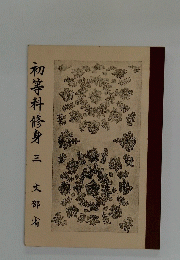 初等科修身 三 文部省